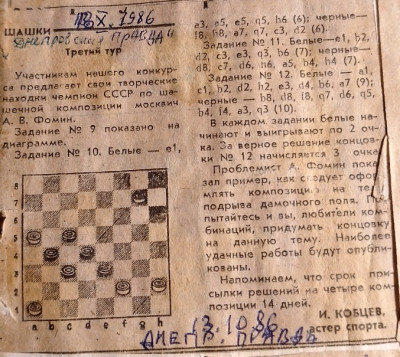 13.X.1986
ШАШКИ
"ДНЕПРОВСКАЯ ПРАВДА"
Третий тур
Участникам нашего конкур-
са предлагает свои творческие
находки чемпион СССР по ша-
шечной композиции москвич
А. В. Фомин.
Задание № 9 показано на
диаграмме.
Задание № 10. Белые — e1,
8
7
6
5
4
3
2
1
a b c d e f g h
a3, a5, e5, g5, h6 (6); черные—
f8, h8, a7, g7, c3, d2 (6).
Задание № 11. Белые—e1, b2,
d2, c3, e3, g3, b6 (7); черные—
d8, c7, d6, h6, a5, b4, h4 (7).
Задание № 12. Белые — a1,
c1, b2, d2, h2, e3, d4, h6, a7 (9);
черные — b8, d8, f8, g7, d6, g5,
b4, f4, a3, g3 (10).
В каждом задании белые на-
чинают и выигрывают по 2 оч-
ка. За верное решение концов-
ки № 12 начисляется 3 очка.
Проблемист А. Фомин пока-
зал пример, как следует офор-
млять композиции на тему
подрыва дамочного поля. По-
пытайтесь и вы, любители ком-
бинаций, придумать концовку
на данную тему. Наиболее
удачные работы будут опубли-
кованы.
Напоминаем, что срок при-
сылки решений на четыре ком-
позиции 14 дней.
И. КОБЦЕВ,
мастер спорта.
13.10.86
ДНЕПР. ПРАВДА